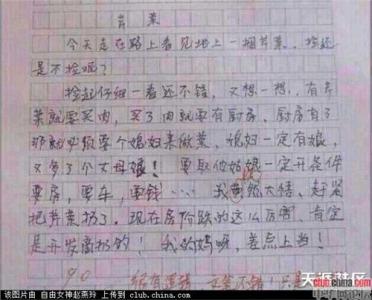 芹菜
今天走在路上看见地上一捆芹菜，捡还
是不捡呢？
捡起仔细一看还不错，又想一想，有芹
菜就要买肉，买了肉就要有厨房，厨房有了
那就必做要个媳妇来做菜，媳妇一定有娘，
又多了个丈母娘！要取他姑娘一定开条件
要房，要车，要钱……我恍然大悟，赶紧
把芹菜扔了。现在房价跌的这么厉害，肯定
是开发商扔的！我的妈呀，差点上当！
90
天涯社区
club.china.com
该图片由 自由女神赵燕玲 上传到 club.china.com